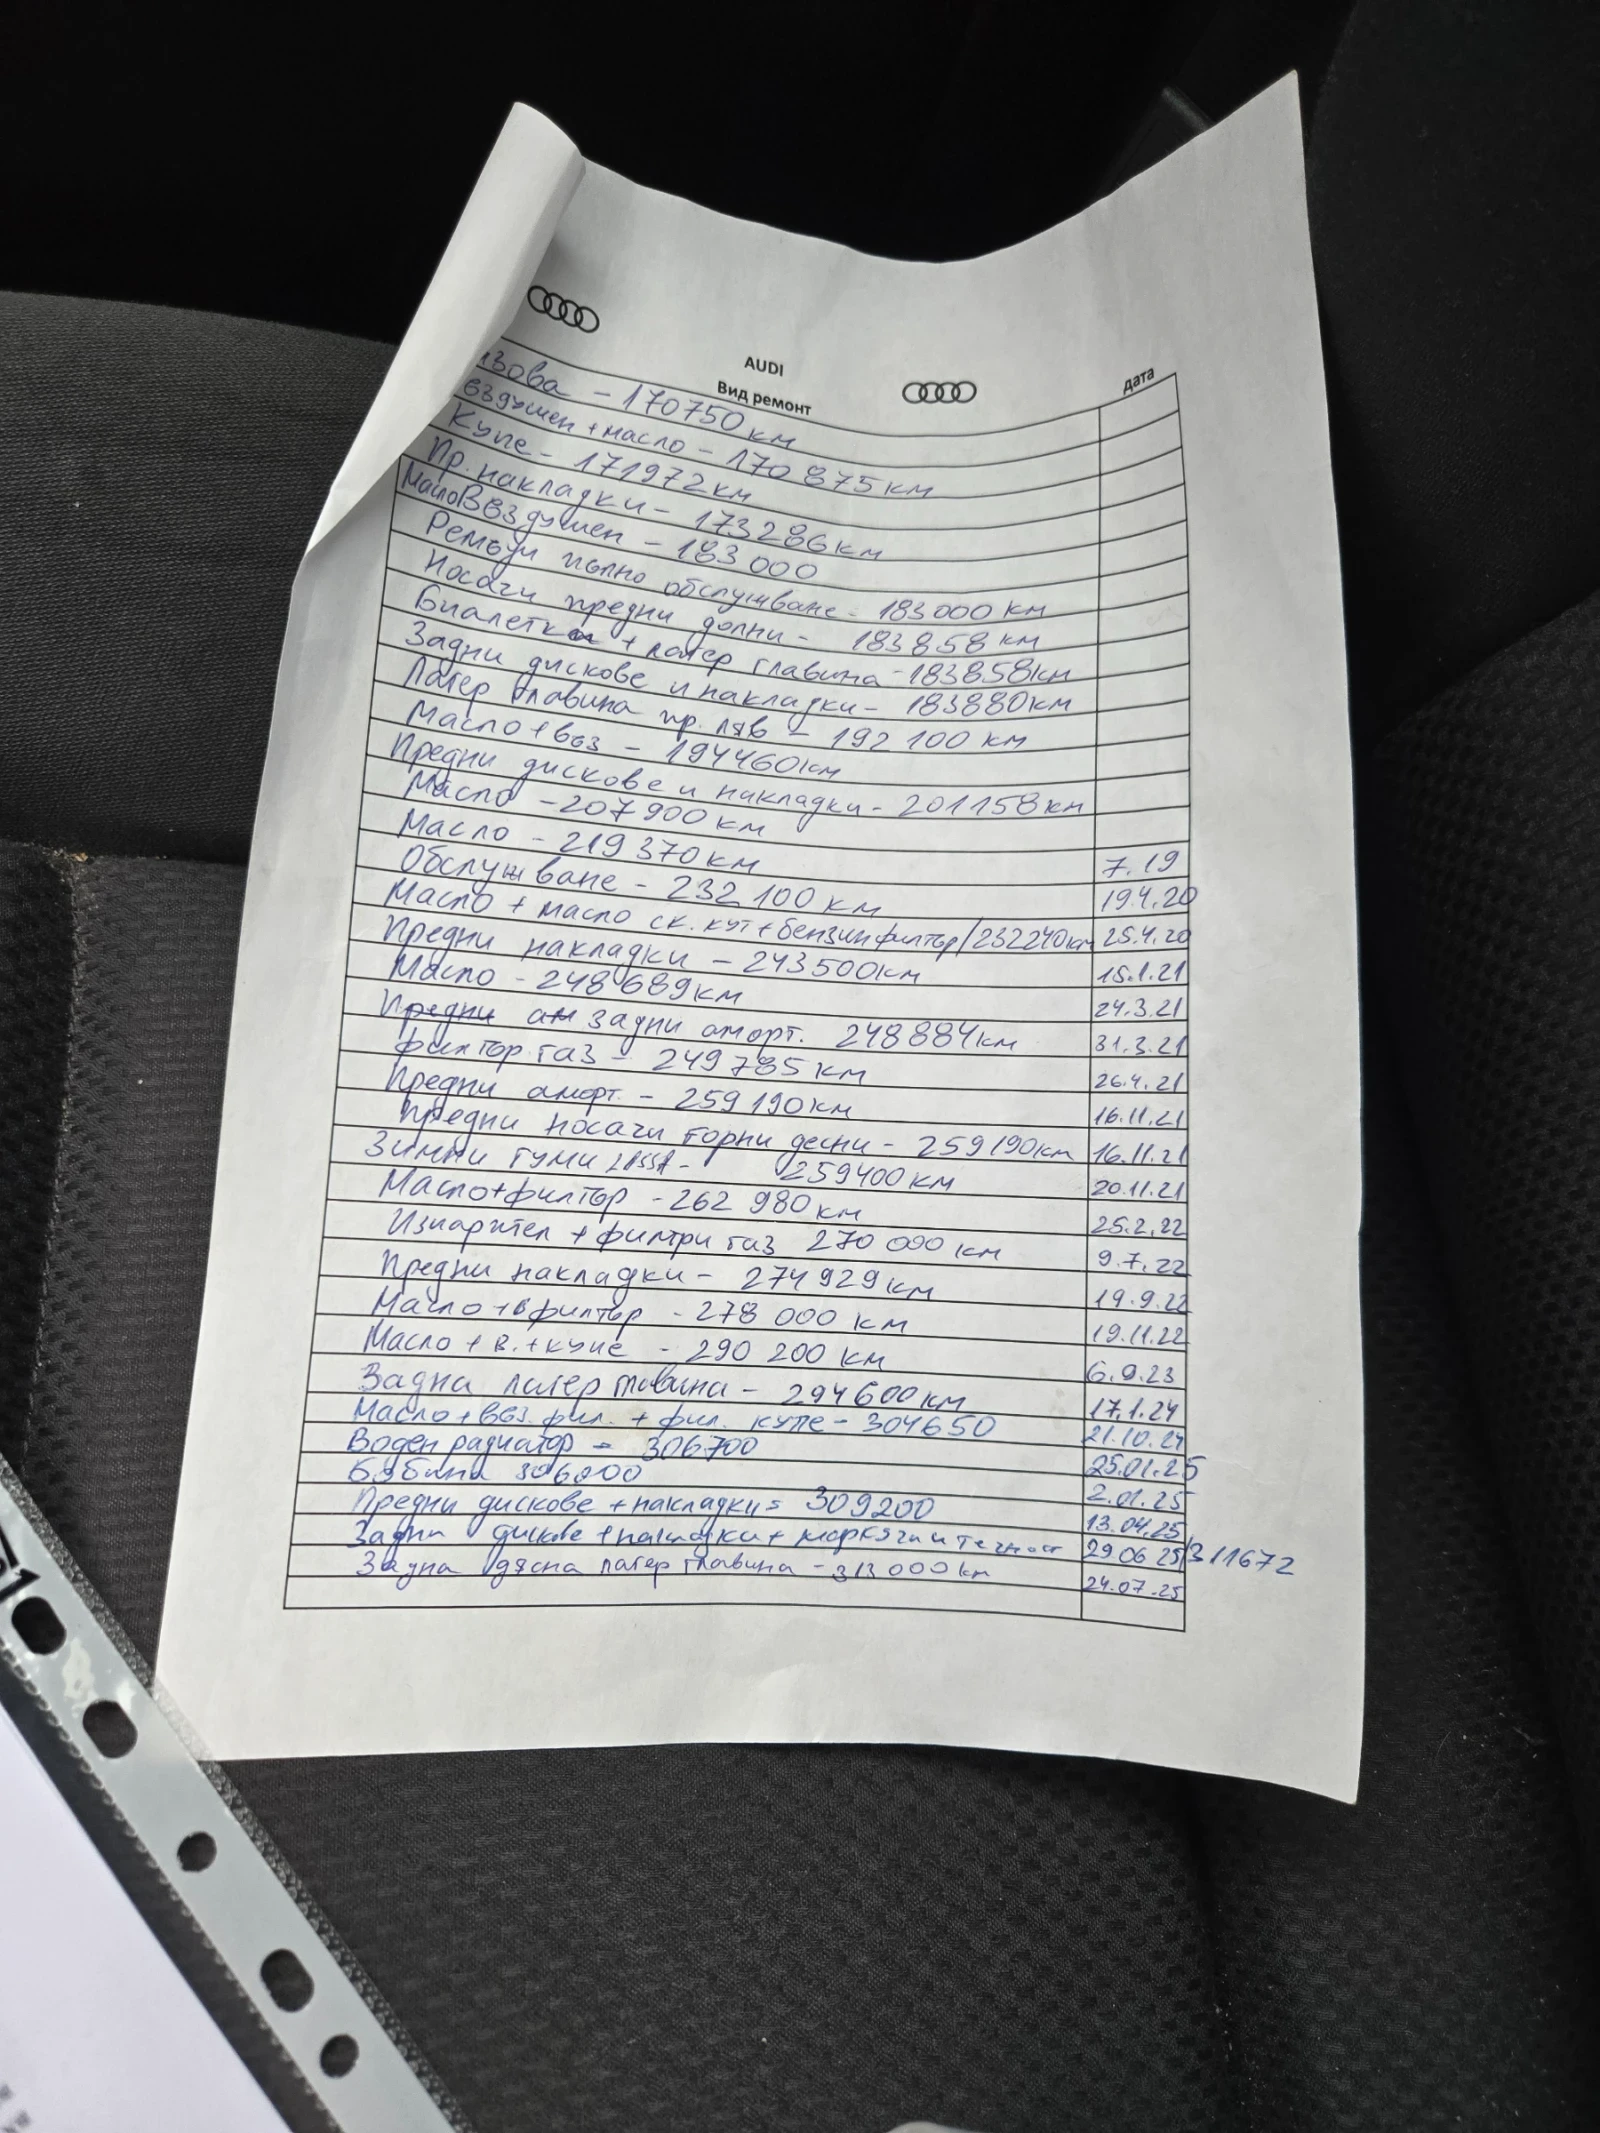 AUDI
Вид ремонт
дата
изова - 170750 км
въздушен + масло - 170 875 км
Купе - 171972 км
Пр. накладки - 173286 км
Масло Въздушен - 183 000
Ремъци пълно обслужване - 183 000 км
Носачи предни долни - 183 858 км
Биалетки + лагер главина - 183858 км
Задни дискове и накладки - 183880 км
Лагер главина пр. ляв - 192 100 км
Масло + въз - 194460 км
Предни дискове и накладки - 201158 км
Масло - 207 900 км 7.19
Масло - 219 370 км 19.4.20
Обслужване - 232 100 км 25.4.20
Масло + масло ск. кут + бензин филтър / 232240 км 15.1.21
Предни накладки - 243500 км 24.3.21
Масло - 248 689 км 31.3.21
Предни ам задни аморт. 248884 км 26.4.21
филтър газ - 249785 км 16.11.21
Предни аморт. - 259 190 км 16.11.21
Предни носачи горни десни - 259190 км 20.11.21
Зимни гуми LASSA - 259400 км
Масло + филтър - 262 980 км 25.2.22
Изпарител + филтри газ 270 000 км 9.7.22
Предни накладки - 274 929 км 19.9.22
Масло + в филтър - 278 000 км 19.11.22
Масло + в. + купе - 290 200 км 6.9.23
Задна лагер главина - 294600 км 17.1.24
Масло + въз. фил. + фил. купе - 304650 21.10.24
Воден радиатор - 306700 25.01.25
Бобина 2.01.25
Предни дискове + накладки = 309200 13.04.25
Задни дискове + накладки + маркучи и течност 29.06 25/311672
Задна дясна лагер главина - 313 000 км 24.07.25